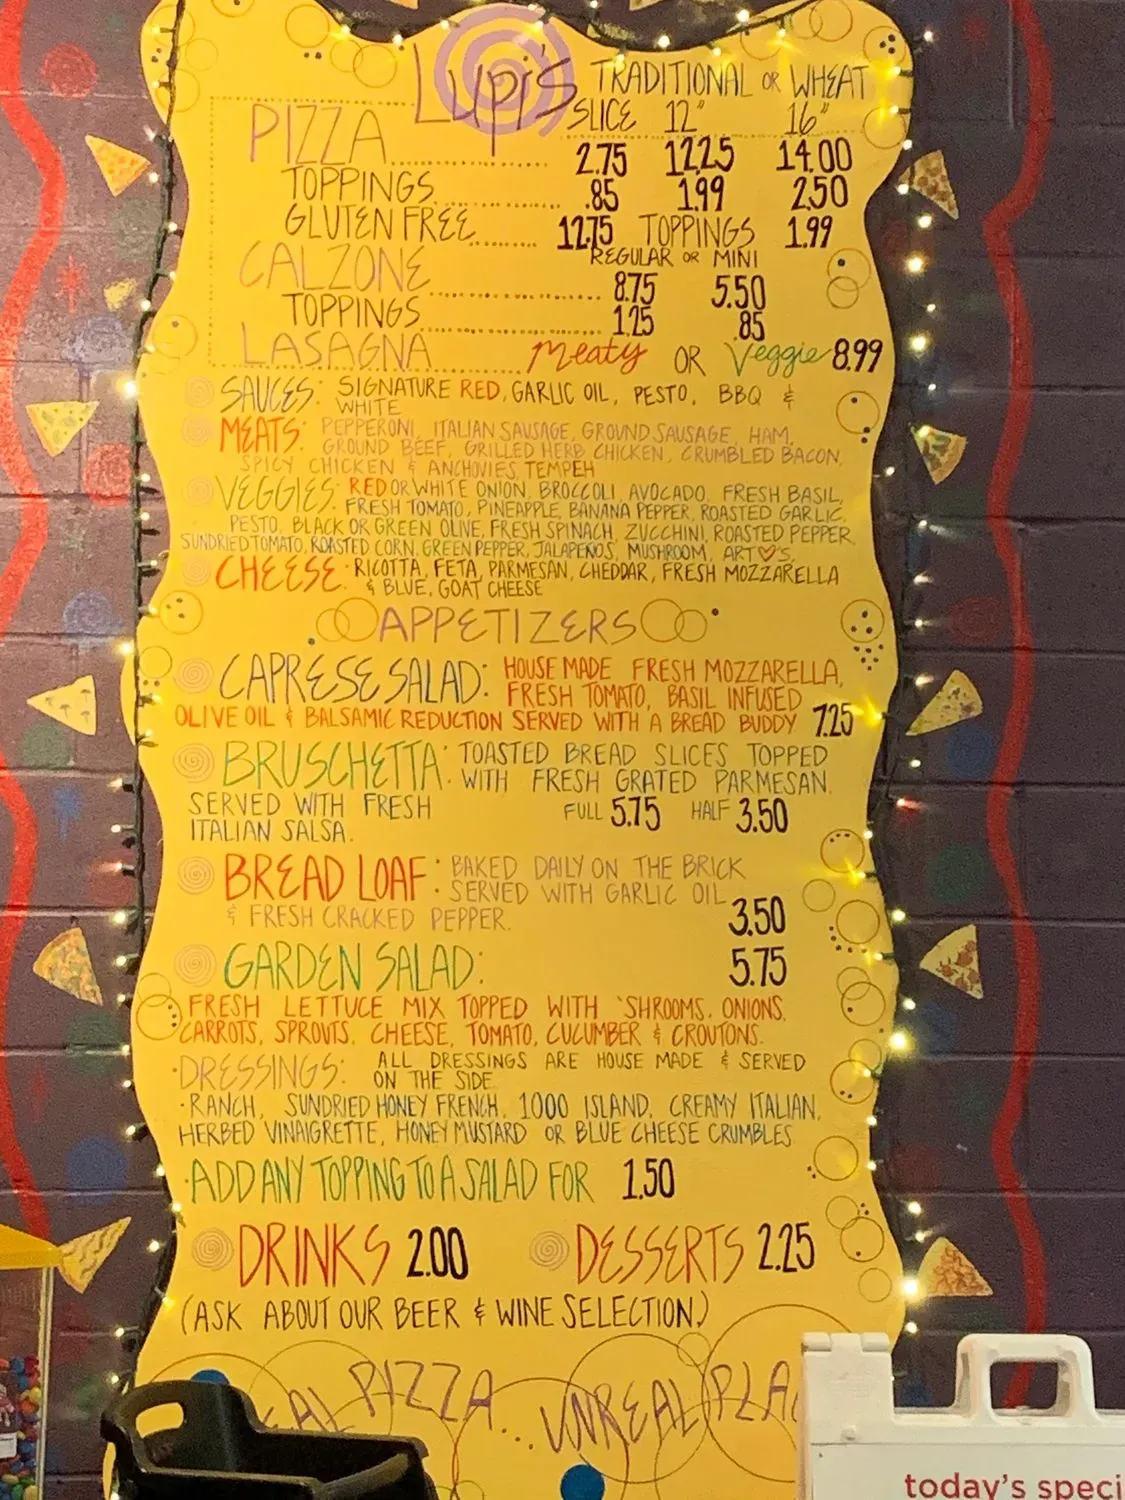 Lupi's TRADITIONAL OR WHEAT
SLICE 12" 16"
PIZZA 2.75 12.25 14.00
TOPPINGS .85 1.99 2.50
GLUTEN FREE 12.75 TOPPINGS 1.99
REGULAR OR MINI
CALZONE 8.75 5.50
TOPPINGS 1.25 .85
LASAGNA Meaty OR Veggie 8.99
SAUCES: SIGNATURE RED, GARLIC OIL, PESTO, BBQ &
WHITE
MEATS: PEPPERONI, ITALIAN SAUSAGE, GROUND SAUSAGE, HAM,
GROUND BEEF, GRILLED HERB CHICKEN, CRUMBLED BACON,
SPICY CHICKEN & ANCHOVIES, TEMPEH
VEGGIES: RED OR WHITE ONION, BROCCOLI, AVOCADO, FRESH BASIL,
FRESH TOMATO, PINEAPPLE, BANANA PEPPER, ROASTED GARLIC,
PESTO, BLACK OR GREEN OLIVE, FRESH SPINACH, ZUCCHINI, ROASTED PEPPER,
SUNDRIED TOMATO, ROASTED CORN, GREEN PEPPER, JALAPEÑOS, MUSHROOM, ART♥'S,
CHEESE: RICOTTA, FETA, PARMESAN, CHEDDAR, FRESH MOZZARELLA
& BLUE, GOAT CHEESE
APPETIZERS
CAPRESE SALAD: HOUSE MADE FRESH MOZZARELLA,
FRESH TOMATO, BASIL INFUSED
OLIVE OIL & BALSAMIC REDUCTION SERVED WITH A BREAD BUDDY 7.25
BRUSCHETTA: TOASTED BREAD SLICES TOPPED
WITH FRESH GRATED PARMESAN.
SERVED WITH FRESH FULL 5.75 HALF 3.50
ITALIAN SALSA.
BREAD LOAF: BAKED DAILY ON THE BRICK
SERVED WITH GARLIC OIL
& FRESH CRACKED PEPPER. 3.50
GARDEN SALAD: 5.75
FRESH LETTUCE MIX TOPPED WITH 'SHROOMS, ONIONS,
CARROTS, SPROUTS, CHEESE, TOMATO, CUCUMBER & CROUTONS.
·DRESSINGS: ALL DRESSINGS ARE HOUSE MADE & SERVED
ON THE SIDE
·RANCH, SUNDRIED HONEY FRENCH, 1000 ISLAND, CREAMY ITALIAN,
HERBED VINAIGRETTE, HONEY MUSTARD OR BLUE CHEESE CRUMBLES
·ADD ANY TOPPING TO A SALAD FOR 1.50
DRINKS 2.00 DESSERTS 2.25
(ASK ABOUT OUR BEER & WINE SELECTION.)
EAL PIZZA... UNREAL PLA
today's speci